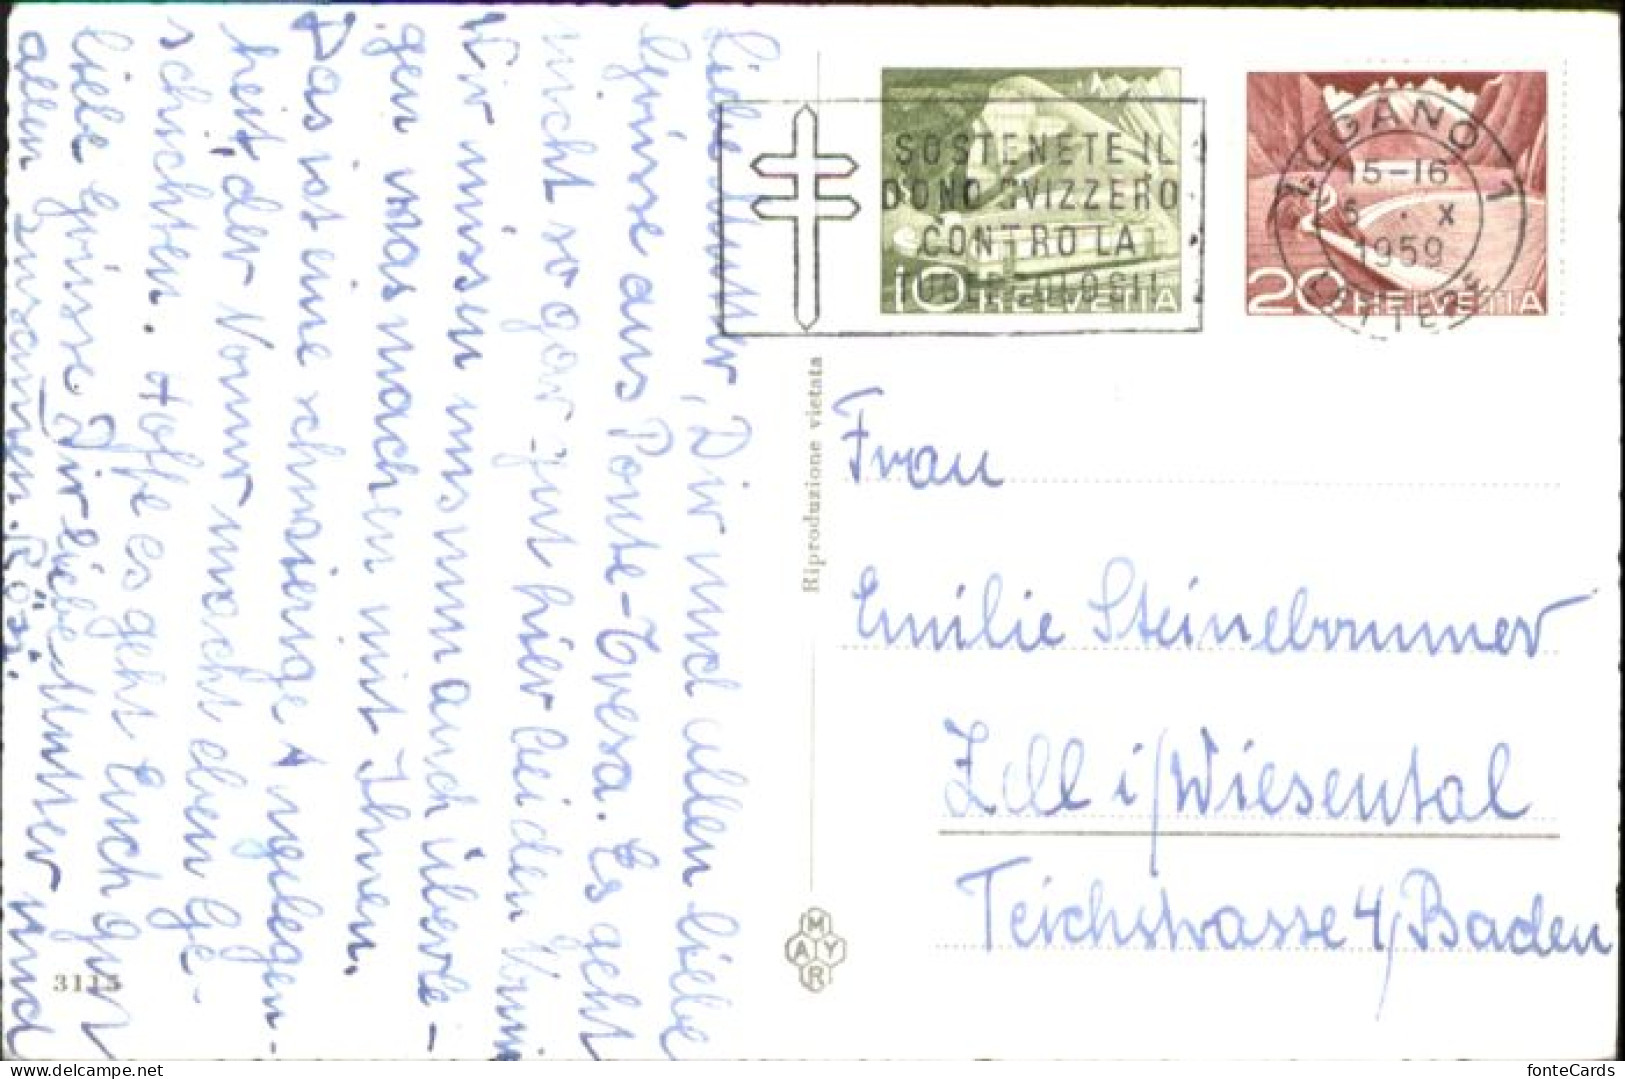 Liebe Mutter, Dir und allen liebe
Grüsse aus Ponte-Tresa. Es geht
nicht so gar gut hier bei den
Wir müssen uns nun auch überle-
gen was machen mit Ihnen.
Das ist eine schwierige Angelegen-
heit, der macht eben Ge-
schichten. Hoffe es geht Euch gut
liebe Grüsse Dir liebe Mutter und
allen zusammen. Rösi.
3115
Riproduzione vietata
MAYR
SOSTENETE IL
DONO SVIZZERO
CONTRO LA
10 HELVETIA
20 HELVETIA
LUGANO 1
15-16
X
1959
LETTERE
Frau
Emilie Steinebrunner
Zell i/Wiesental
Teichstrasse 4/Baden
delcampe.net
fonteCards